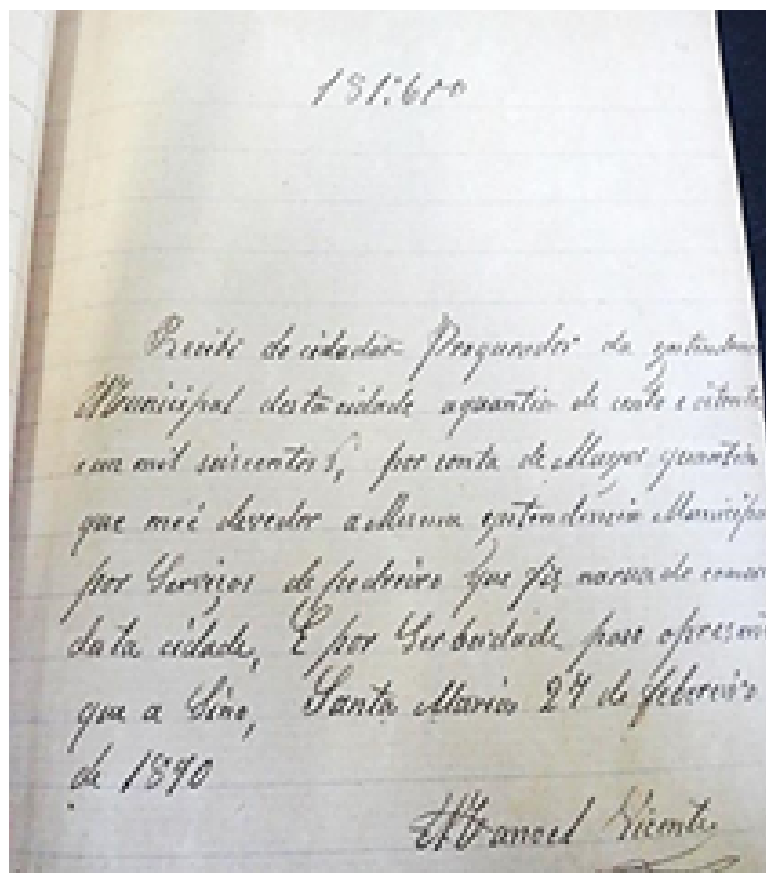 181:600
Recibi do cidadão Proqurador da entenden
Municipal desta cidade aquantia de cento e oitenta
e um mil seiscentos $, por conta de Mayor quantia
que meé devedor a Mesma entendencia Municipa
por Serviços de pedreiro que fiz narua do comer
desta cidade, E por Ser berdade paso opresen
que a Sino, Santa Maria 27 de febereiro
de 1890
Manoel Vicente